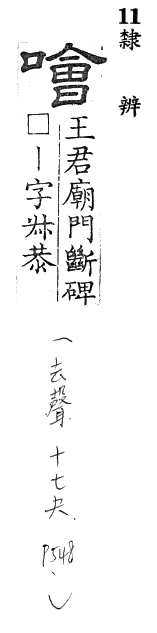 11
隸辨
噲
王君廟門斷碑
□丨字𠦑恭
(去聲.十七夬.P548.)